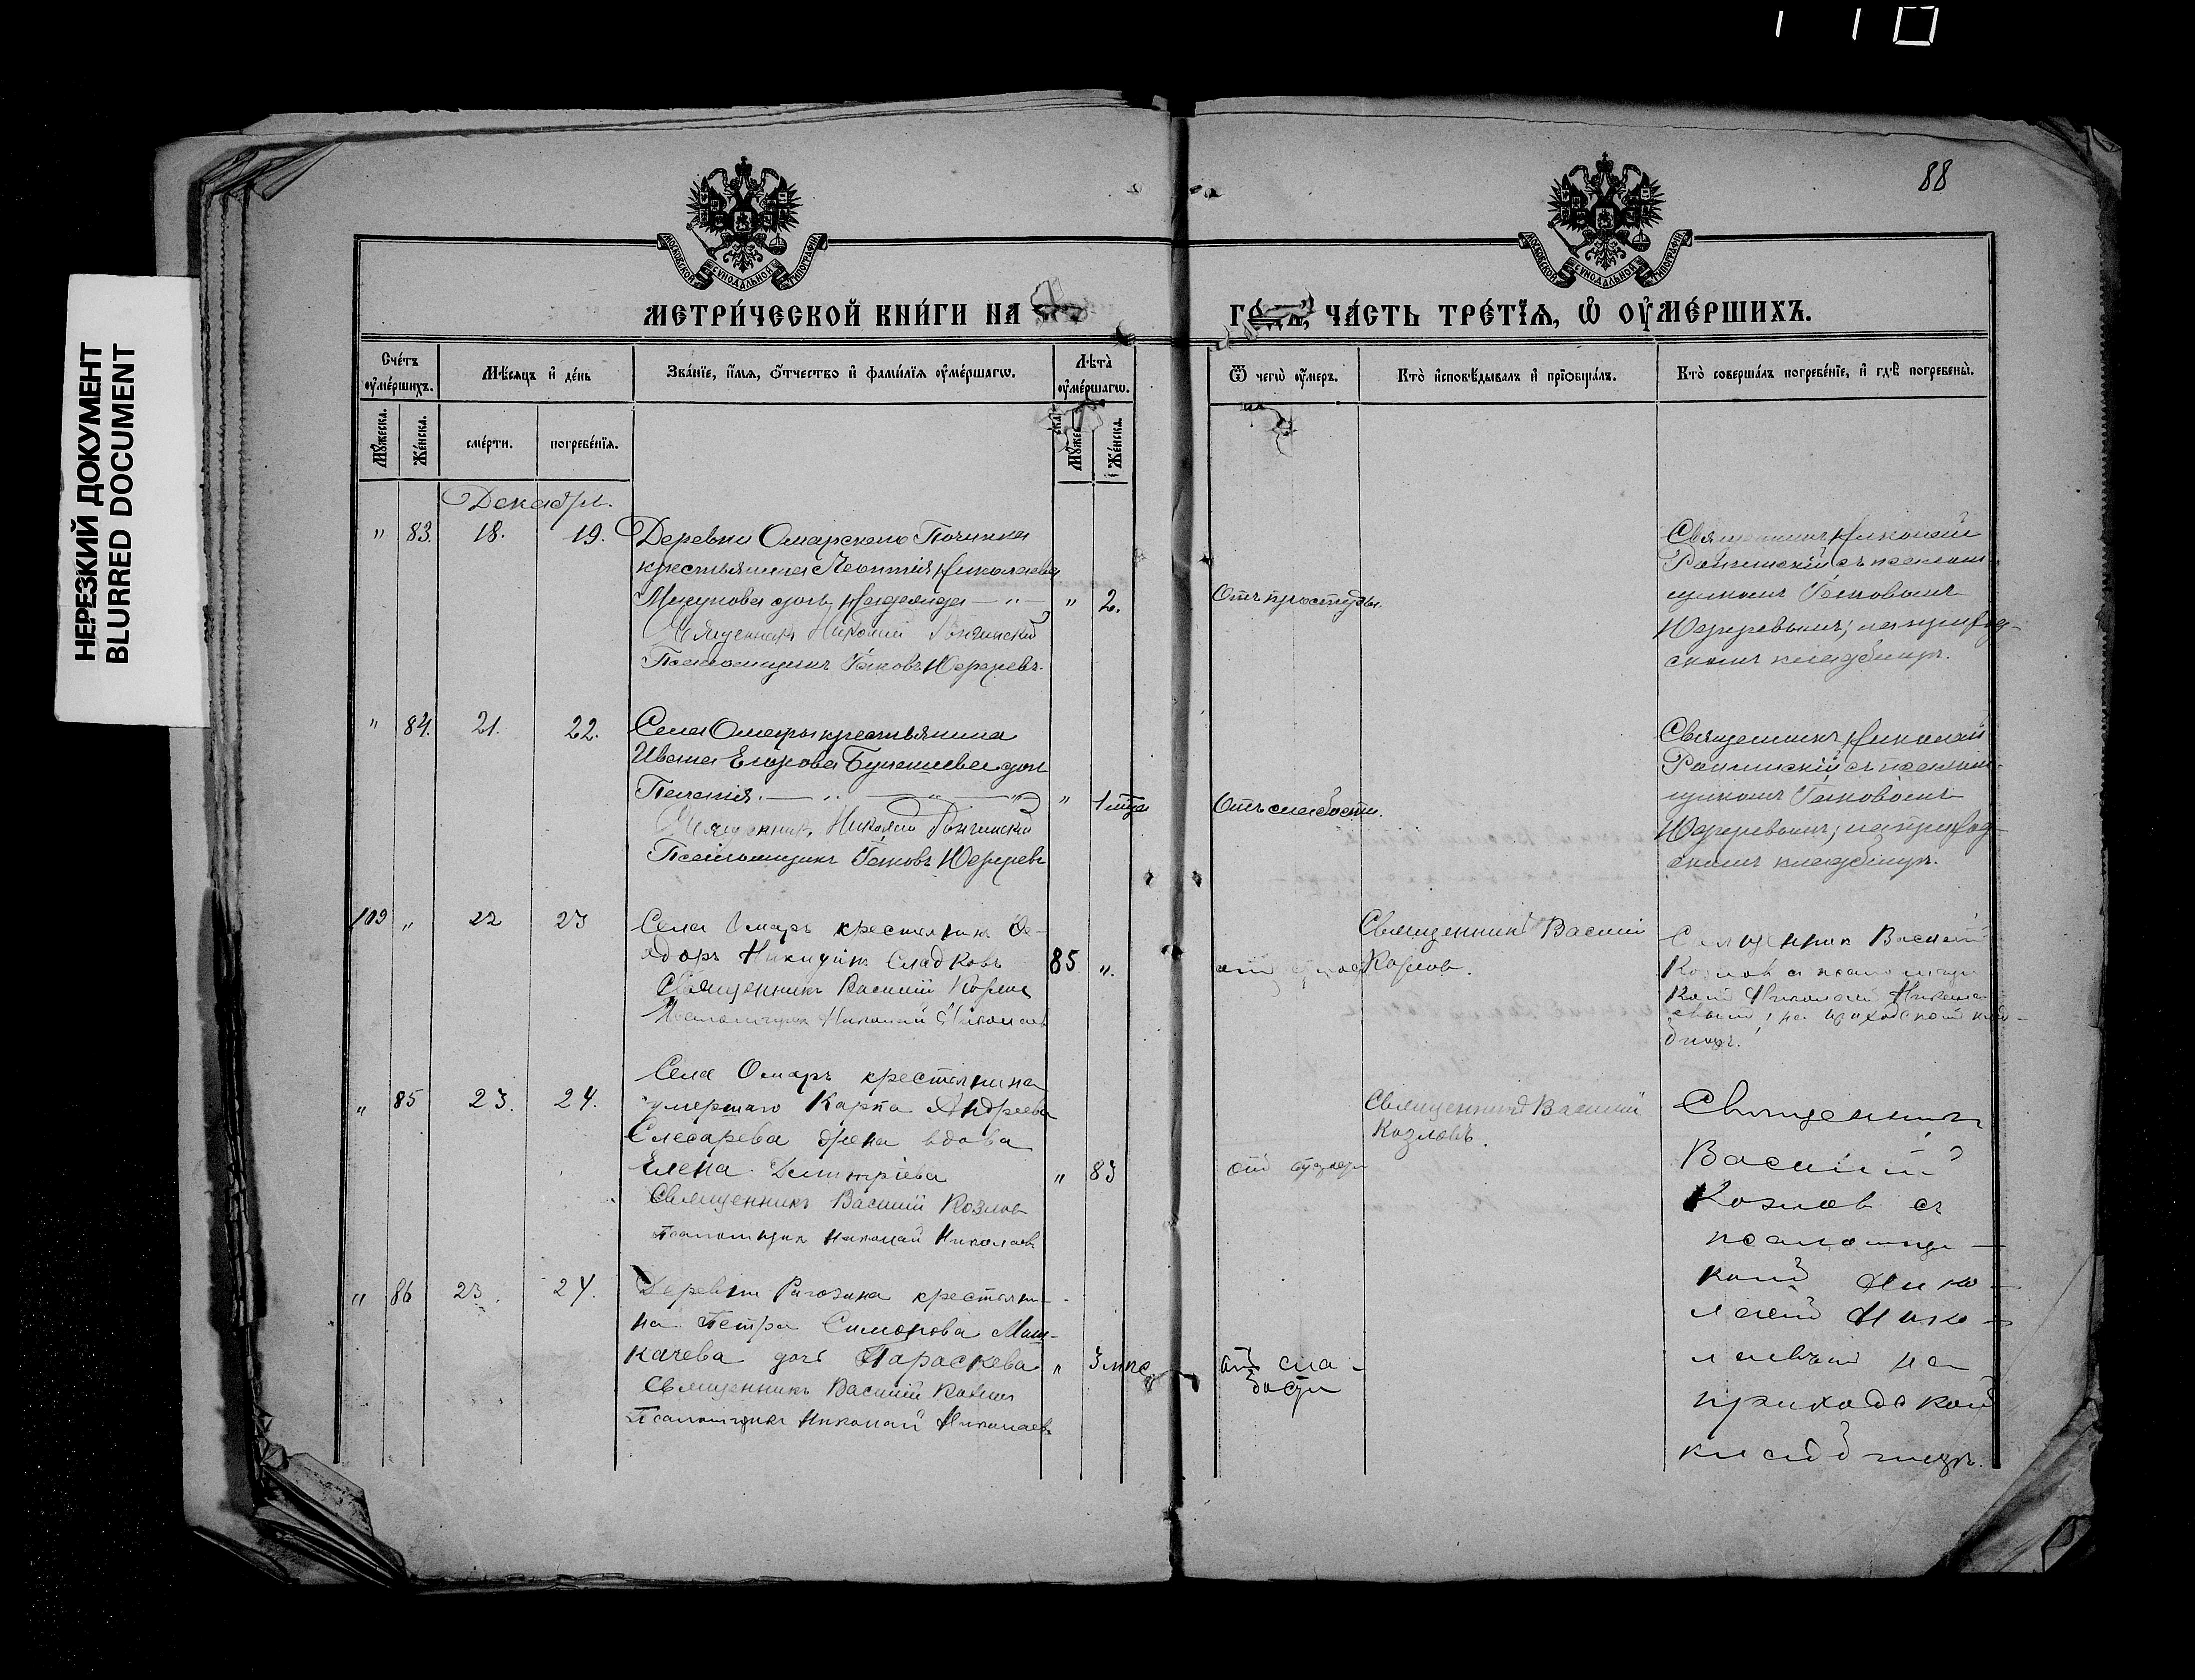 88
НЕРЕЗКИЙ ДОКУМЕНТ
BLURRED DOCUMENT
МОСКОВСКОЙ СѴНОДАЛЬНОЙ ТИПОГРАФІИ
МОСКОВСКОЙ СѴНОДАЛЬНОЙ ТИПОГРАФІИ
МЕТРИ́ЧЕСКОЙ КНИ́ГИ НА
ЧА́СТЬ ТРЕ́ТЇЯ, Ѡ҆ ОУ҆МЕ́РШИХЪ.
Сче́тъ оу҆ме́ршихъ.
Мꙋ́жеска.
Же́нска.
Мѣ́сяцъ и҆ де́нь
сме́рти.
погребе́нїя.
Зва́нїе, и҆́мя, ѻ҆́тчество и҆ фами́лїя оу҆ме́ршагѡ.
Лѣ́та оу҆ме́ршагѡ.
Мꙋ́жеска.
Же́нска.
Ѿ чегѡ̀ оу҆́меръ.
Кто̀ и҆сповѣ́дывалъ и҆ прїѡбща́лъ.
Кто̀ соверша́лъ погребе́нїе, и҆ гдѣ̀ погребены̀.
Декабрь.
" 83. 18. 19.
Деревни Омарскаго Починка
крестьянина Леонтія Николаева
дочь Надежда — " —
" 2.
Священникъ Николай
Псаломщикъ Іаковъ Юферевъ.
Отъ простуды.
Священникъ Николай
съ псалом-
щикомъ Іаковомъ
Юферевымъ; на приход-
скомъ кладбищѣ.
" 84. 21. 22.
Села Омары крестьянина
Ивана Егорова дочь
Пелагія. — " —
" 1 мѣца
Священникъ Николай
Псаломщикъ Іаковъ Юферевъ
Отъ слабости.
Священникъ Николай
съ псалом-
щикомъ Іаковомъ
Юферевымъ; на приход-
скомъ кладбищѣ.
109 " 22 23
Села Омаръ крестянинъ Ѳе-
одоръ Никитинъ Сладковъ
85 ".
Священникъ Василій Козлов
Псаломщикъ Николай Николаев
Священникъ Василий
Козлов.
Священник Василий
Козлов с псаломщи-
ком Николаем Никола-
евым; на приходском клад-
бищѣ.
" 85 23. 24.
Села Омаръ крестянина
умершаго Карпа Андреева
Слесарева жена вдова
Елена Димитріева
" 83
Священникъ Василий Козлов
Псаломщик Николай Николаев
Священникъ Василий
Козловъ.
Священникъ
Василий
Козлов съ
псаломщи-
ком Нико-
лаем Нико-
лаевым на
приходском
кладбищѣ.
" 86 23. 24.
Деревни Рагозина крестяни-
на Петра
дочь Параскева
" 3 мѣс
Священникъ Василий Козлов
Псаломщикъ Николай Николаев
от сла-
бости